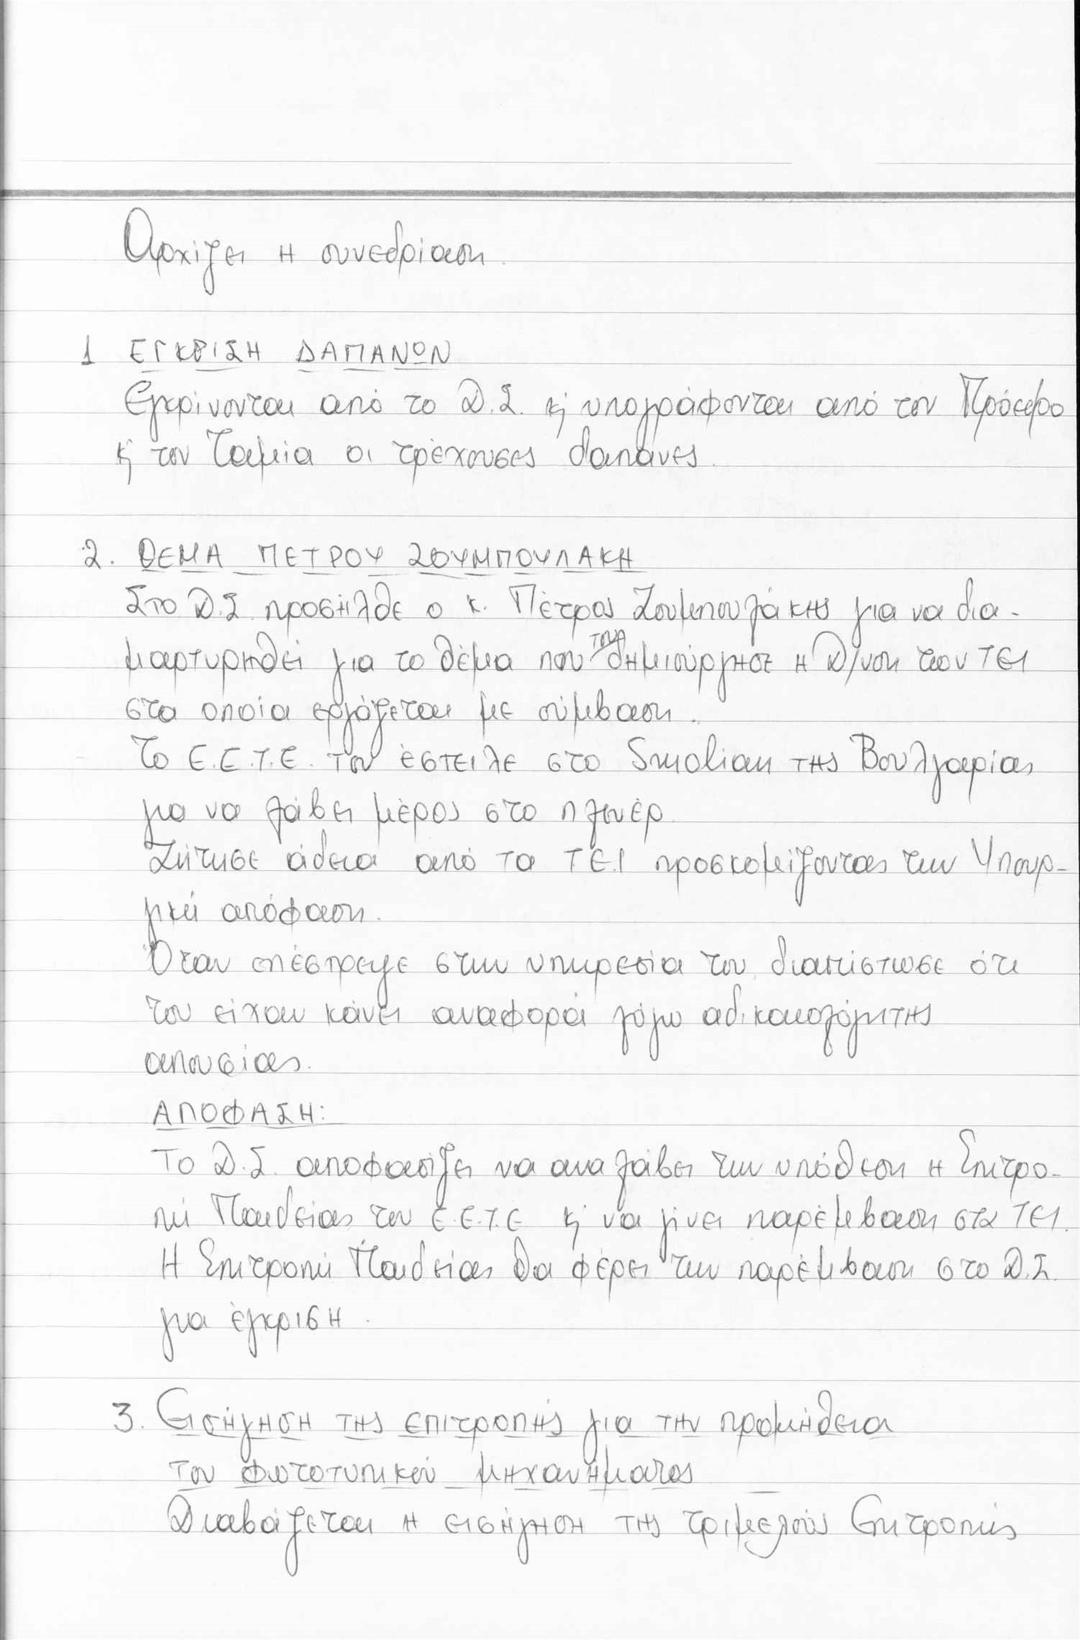 Αρχίζει η συνεδρίαση.
1 ΕΓΚΡΙΣΗ ΔΑΠΑΝΩΝ
Εγκρίνονται από το Δ.Σ. κ' υπογράφονται από τον Πρόεδρο
κ' τον Ταμία οι τρέχουσες δαπάνες.
2. ΘΕΜΑ ΠΕΤΡΟΥ ΖΟΥΜΠΟΥΛΑΚΗ
Στο Δ.Σ. προσήλθε ο κ. Πέτρος Ζουμπουλάκης για να δια-
μαρτυρηθεί για το θέμα που του δημιούργησε η Δ/νση των ΤΕΙ
στα οποία εργάζεται με σύμβαση.
Το Ε.Ε.Τ.Ε. τον έστειλε στο Smolian της Βουλγαρίας
για να λάβει μέρος στο πλενέρ.
Ζήτησε άδεια από τα ΤΕΙ προσκομίζοντας την Υπουρ-
γική απόφαση.
Όταν επέστρεψε στην υπηρεσία του διαπίστωσε ότι
του είχαν κάνει αναφορά λόγω αδικαιολόγητης
απουσίας.
ΑΠΟΦΑΣΗ:
Το Δ.Σ. αποφασίζει να αναλάβει την υπόθεση η Επιτρο-
πή Παιδείας του Ε.Ε.Τ.Ε κ' να γίνει παρέμβαση στα ΤΕΙ.
Η Επιτροπή Παιδείας θα φέρει την παρέμβαση στο Δ.Σ.
για έγκριση.
3. Εισήγηση της επιτροπής για την προμήθεια
του φωτοτυπικού μηχανήματος
Διαβάζεται η εισήγηση της τριμελούς Επιτροπής